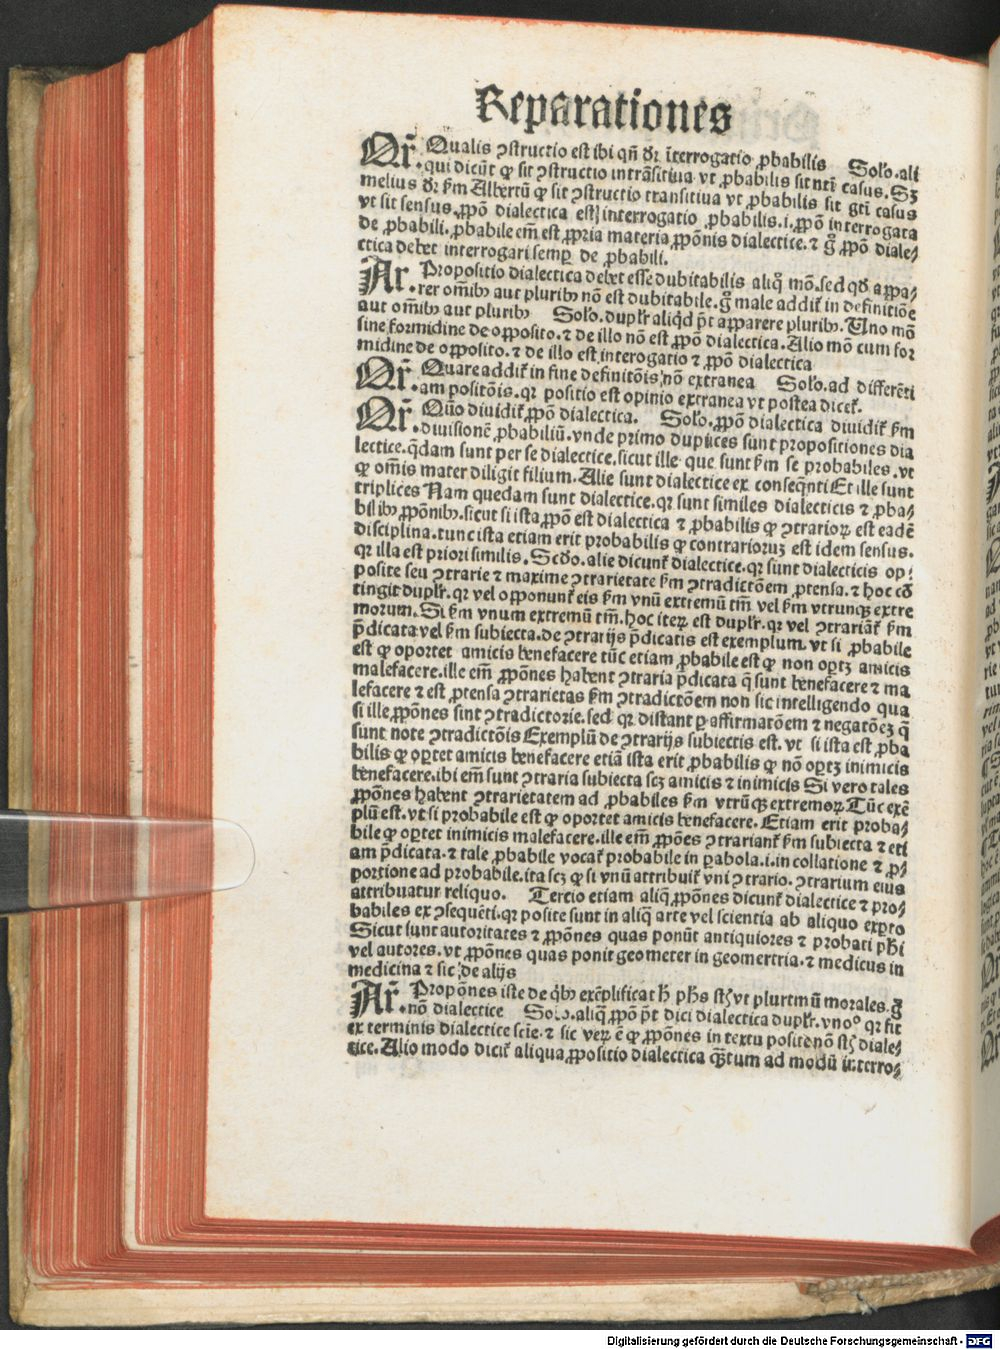 Reparationes
Qr̃. Qualis ꝯstructio est ibi qñ dr̃ ĩterrogatio ꝓbabilis Solo. ali
qui dicũt ꝙ sit ꝯstructio intrãsitiua vt ꝓbabilis sit ntĩ casus. Sꝫ
melius dr̃ ẜm Albertũ ꝙ sit ꝯstructio transitiua vt ꝓbabilis sit gtĩ casus
vt sit sensus. ꝓpõ dialectica est interrogatio ꝓbabilis .i. ꝓpõ interrogata
de ꝓbabili. ꝓbabile em̃ est ꝓpria materia ꝓpõnis dialectice. ⁊ g̃ ꝓpõ diale⸗
ctica debet interrogari semꝑ de ꝓbabili.
Ar̃. Propositio dialectica debet esse dubitabilis aliq̃ mõ. sed qď appa⸗
rer om̃ibꝰ aut pluribꝰ nõ est dubitabile. g̃ male addit̃ in definitiõe
aut om̃ibꝰ aut pluribꝰ Solo. duplr̃ aliqd p̃t apparere pluribꝰ. Uno mõ
sine formidine de opposito. ⁊ de illo nõ est ꝓpõ dialectica. Alio mõ cum for
midine de opposito. ⁊ de illo est interogatio ⁊ ꝓpõ dialectica
Qr̃. Quare addit̃ in fine definitõis, nõ extranea Solo. ad differẽti
am positõis. qꝛ positio est opinio extranea vt postea dicet̃.
Qr̃. Quõ diuidit̃ ꝓpõ dialectica. Solo. ꝓpõ dialectica diuidit̃ ẜm
diuisionẽ ꝓbabiliũ. vnde primo duplices sunt propositiones dia
lectice. q̃dam sunt per se dialectice. sicut ille que sunt ẜm se probabiles. vt
ꝙ om̃is mater diligit filium. Alie sunt dialectice ex conseq̃nti Et ille sunt
triplices Nam quedam sunt dialectice. qꝛ sunt similes dialecticis ⁊ ꝓba⸗
bilibꝰ ꝓpõnibꝰ. sicut si ista ꝓpõ est dialectica ⁊ ꝓbabilis ꝙ ꝯtrarioꝝ est eadẽ
disciplina. tunc ista etiam erit probabilis ꝙ contrarioruꝫ est idem sensus.
qꝛ illa est priori similis. Scďo. alie dicunt̃ dialectice. qꝛ sunt dialecticis op⸗
posite seu ꝯtrarie ⁊ maxime ꝯtrarietate ẜm ꝯtradictõem ꝓtensa. ⁊ hoc cõ
tingit duplr̃. qꝛ vel opponunt̃ eis ẜm vnũ extremũ tm̃ vel ẜm vtrunqꝫ extre
morum. Si ẜm vnum extremũ tm̃. hoc iteꝝ est duplr̃. qꝛ vel ꝯtrariãt̃ ẜm
p̃dicata vel ẜm subiecta. de ꝯtrarijs p̃dicatis est exemplum. vt si ꝓbabile
est ꝙ oportet amicis benefacere tũc etiam ꝓbabile est ꝙ non oportꝫ amicis
malefacere. ille em̃ ꝓpõnes habent ꝯtraria p̃dicata q̃ sunt benefacere ⁊ ma
lefacere ⁊ est ꝓtensa ꝯtrarietas ẜm ꝯtradictõem non sic intelligendo qua
si ille ꝓpõnes sint ꝯtradictorie. sed qꝛ distant ꝑ affirmatõem ⁊ negatõeꝫ q̃
sunt note ꝯtradictõis Exemplũ de ꝯtrarijs subiectis est. vt si ista est ꝓba
bilis ꝙ oportet amicis benefacere etiã ista erit ꝓbabilis ꝙ nõ oportꝫ inimicis
benefacere. ibi em̃ sunt ꝯtraria subiecta scꝫ amicis ⁊ inimicis Si vero tales
ꝓpõnes habent ꝯtrarietatem ad ꝓbabiles ẜm vtrũqꝫ extremoꝝ. Tũc exẽ
plũ est. vt si probabile est ꝙ oportet amicis benefacere. Etiam erit proba⸗
bile ꝙ oportet inimicis malefacere. ille em̃ ꝓpões ꝯtrariant̃ ẜm subiecta ⁊ eti
am p̃dicata. ⁊ tale ꝓbabile vocat̃ probabile in ꝑabola .i. in collatione ⁊ ꝓ⸗
portione ad probabile. ita scꝫ ꝙ si vnũ attribuit̃ vni ꝯtrario. ꝯtrarium eius
attribuatur reliquo. Tercio etiam aliq̃ ꝓpõnes dicunt̃ dialectice ⁊ pro⸗
babiles ex ꝯsequẽti. qꝛ posite sunt in aliq̃ arte vel scientia ab aliquo exꝑto
Sicut sunt autoritates ⁊ ꝓpõnes quas ponũt antiquiores ⁊ probati pħi
vel autores. vt ꝓpõnes quas ponit geometer in geometria. ⁊ medicus in
medicina ⁊ sic de alijs
Ar̃. Propõnes iste de q̃bꝰ exẽplificat ħ pħs sꝫ vt plurimũ morales. g̃
nõ dialectice Solo. aliq̃ ꝓpõ p̃t dici dialectica duplr̃. vno° qꝛ fit
ex terminis dialectice scĩe. ⁊ sic veꝝ ẽ ꝙ ꝓpõnes in textu posite nõ sꝫ diale⸗
ctice. Alio modo dicit̃ aliqua ꝓpositio dialectica q̃tum ad modũ interro⸗
Digitalisierung gefördert durch die Deutsche Forschungsgemeinschaft - DFG